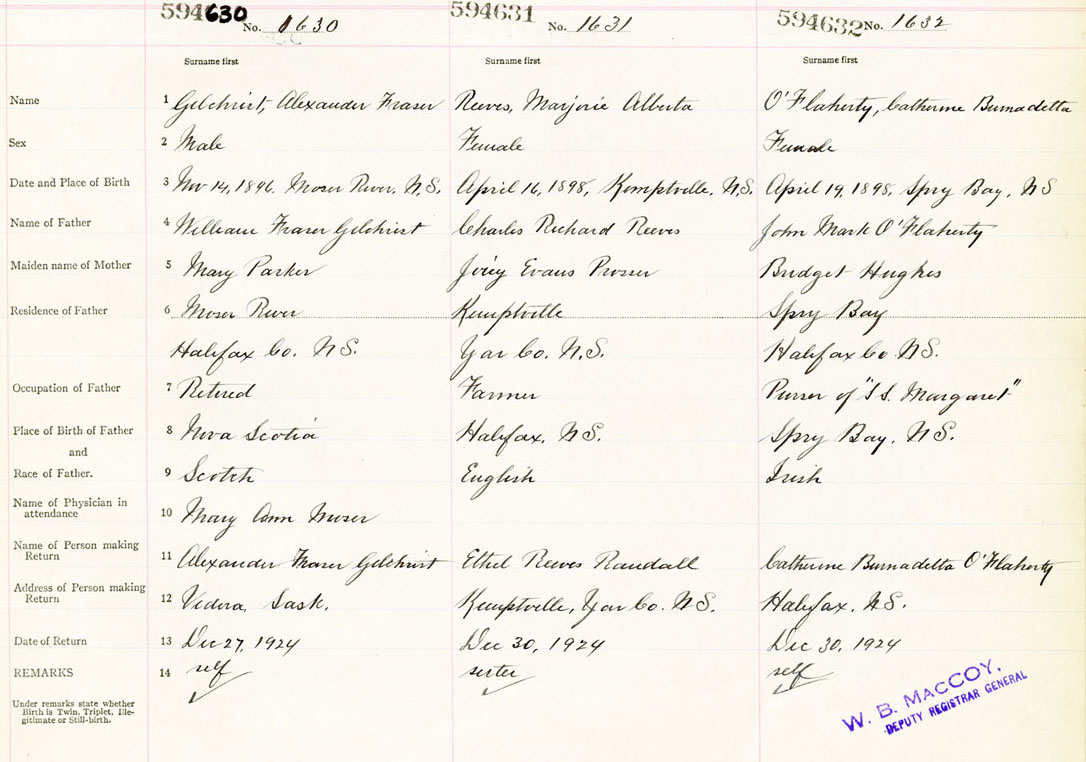 594630 No. 1630 594631 No. 1631 594632 No. 1632
Surname first Surname first Surname first
Name 1 Gilchrist, Alexander Fraser Reeves, Marjorie Alberta O'Flaherty, Catherine Burnadetta
Sex 2 Male Female Female
Date and Place of Birth 3 Nov 14, 1896. Moser River, N.S. April 16, 1898, Kemptville, N.S. April 19, 1898, Spry Bay, NS
Name of Father 4 William Fraser Gilchrist Charles Richard Reeves John Mark O'Flaherty
Maiden name of Mother 5 Mary Parker Evans Prosser Bridget Hughes
Residence of Father 6 Moser River Kemptville Spry Bay
Halifax Co. N.S. Yar Co. N.S. Halifax Co N.S.
Occupation of Father 7 Retired Farmer Purser of "S.S. Margaret"
Place of Birth of Father 8 Nova Scotia Halifax, N.S. Spry Bay, N.S.
and
Race of Father. 9 Scotch English Irish
Name of Physician in
attendance 10 Mary Ann Moser
Name of Person making
Return 11 Alexander Fraser Gilchrist Ethel Reeves Randall Catherine Burnadetta O'Flaherty
Address of Person making
Return 12 Sask. Kemptville, Yar Co. N.S. Halifax, N.S.
Date of Return 13 Dec 27, 1924 Dec 30, 1924 Dec 30, 1924
REMARKS 14 self sister self
Under remarks state whether
Birth is Twin, Triplet, Ille-
gitimate or Still-birth.
W. B. MACCOY,
DEPUTY REGISTRAR GENERAL